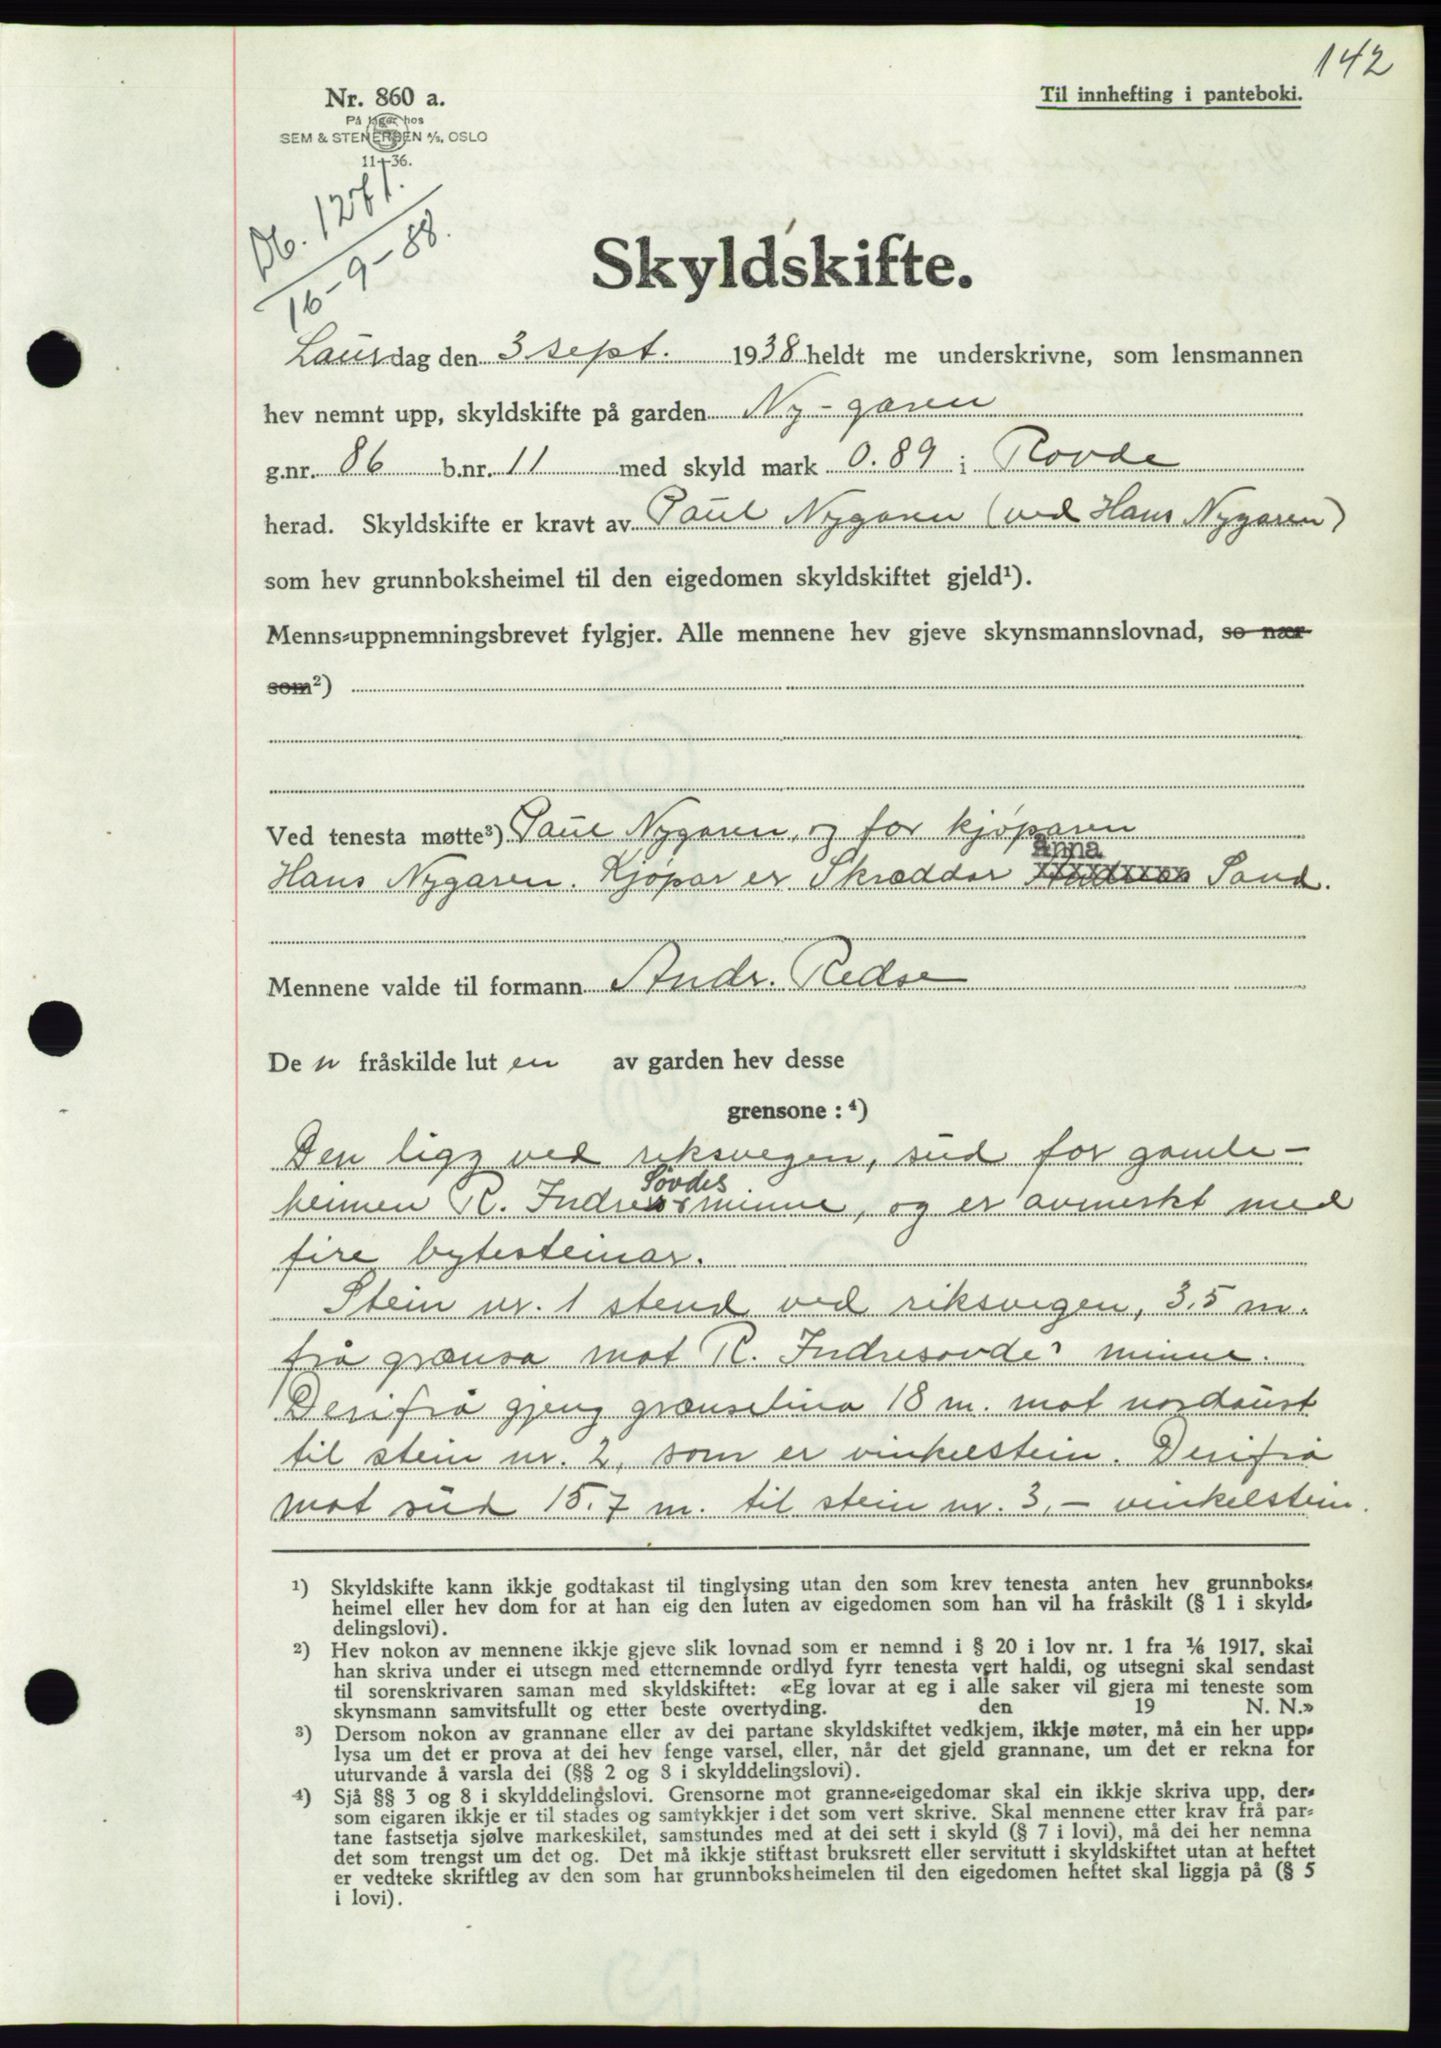 142
Nr. 860 a.
På lager hos
SEM & STENERSEN A/S, OSLO
11-36.
Til innhefting i panteboki.
Db. 1271.
16-9-38.
Skyldskifte.
Laurdag den 3 sept. 1938 heldt me underskrivne, som lensmannen
hev nemnt upp, skyldskifte på garden Ny-garen
g.nr. 86 b.nr. 11 med skyld mark 0.89 i Rovde
herad. Skyldskifte er kravt av Paul Nygaren (ved Hans Nygaren)
som hev grunnboksheimel til den eigedomen skyldskiftet gjeld¹).
Menns-uppnemningsbrevet fylgjer. Alle mennene hev gjeve skynsmannslovnad, so nær
som²)
Ved tenesta møtte³) Paul Nygaren, og for kjøparen
Anna
Hans Nygaren. Kjøpar er Skræddar Sand.
Mennene valde til formann Andr. Redse
De n fråskilde lut en av garden hev desse
grensone : ⁴)
Den ligg ved riksvegen, sud for gamle-
Søvdes
heimen R. Indre minne, og er avmerkt med
fire bytesteinar.
Stein nr. 1 stend ved riksvegen, 3,5 m.
frå grænsa mot R. Indresovdes minne.
Derifrå gjeng grænselina 18 m. mot nordaust
til stein nr. 2, som er vinkelstein. Derifrå
mot sud 15.7 m. til stein nr. 3, - vinkelstein.
¹) Skyldskifte kann ikkje godtakast til tinglysing utan den som krev tenesta anten hev grunnboks-
heimel eller hev dom for at han eig den luten av eigedomen som han vil ha fråskilt (§ 1 i skyld-
delingslovi).
²) Hev nokon av mennene ikkje gjeve slik lovnad som er nemnd i § 20 i lov nr. 1 fra 1/6 1917, skal
han skriva under ei utsegn med etternemnde ordlyd fyrr tenesta vert haldi, og utsegni skal sendast
til sorenskrivaren saman med skyldskiftet: «Eg lovar at eg i alle saker vil gjera mi teneste som
skynsmann samvitsfullt og etter beste overtyding. den 19 N. N.»
³) Dersom nokon av grannane eller av dei partane skyldskiftet vedkjem, ikkje møter, må ein her upp-
lysa um det er prova at dei hev fenge varsel, eller, når det gjeld grannane, um det er rekna for
uturvande å varsla dei (§§ 2 og 8 i skylddelingslovi).
⁴) Sjå §§ 3 og 8 i skylddelingslovi. Grensorne mot granne-eigedomar skal ein ikkje skriva upp, der-
som eigaren ikkje er til stades og samtykkjer i det som vert skrive. Skal mennene etter krav frå par-
tane fastsetja sjølve markeskilet, samstundes med at dei sett i skyld (§ 7 i lovi), må dei her nemna
det som trengst um det og. Det må ikkje stiftast bruksrett eller servitutt i skyldskiftet utan at heftet
er vedteke skriftleg av den som har grunnboksheimelen til den eigedomen heftet skal liggja på (§ 5
i lovi).